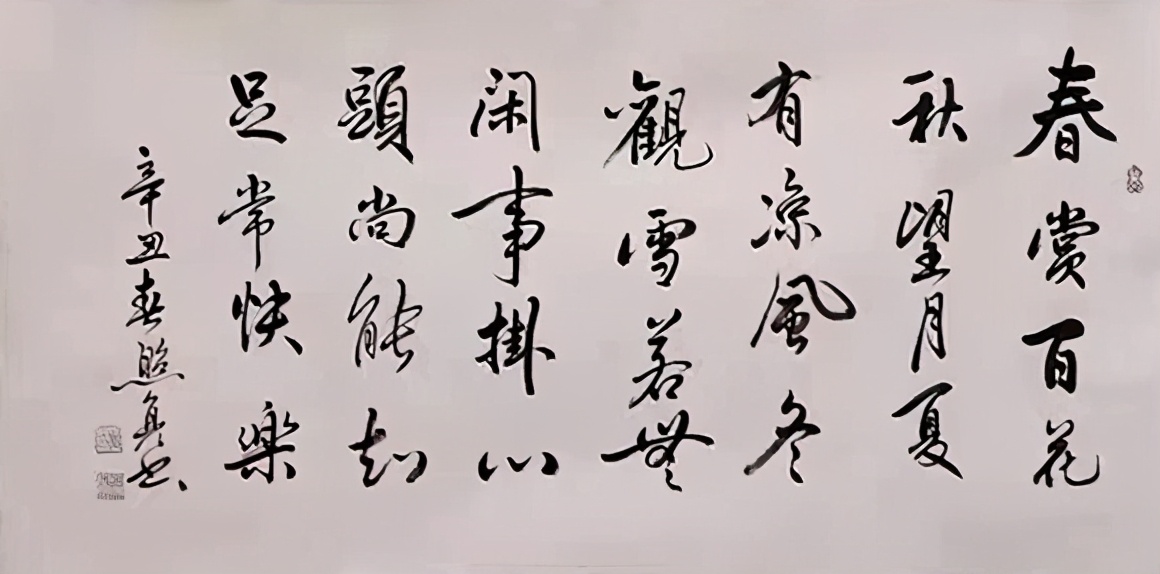 春賞百花
秋望月夏
有凉風冬
觀雪若無
閑事掛心
頭尚能知
足常快樂
辛丑春熙真书